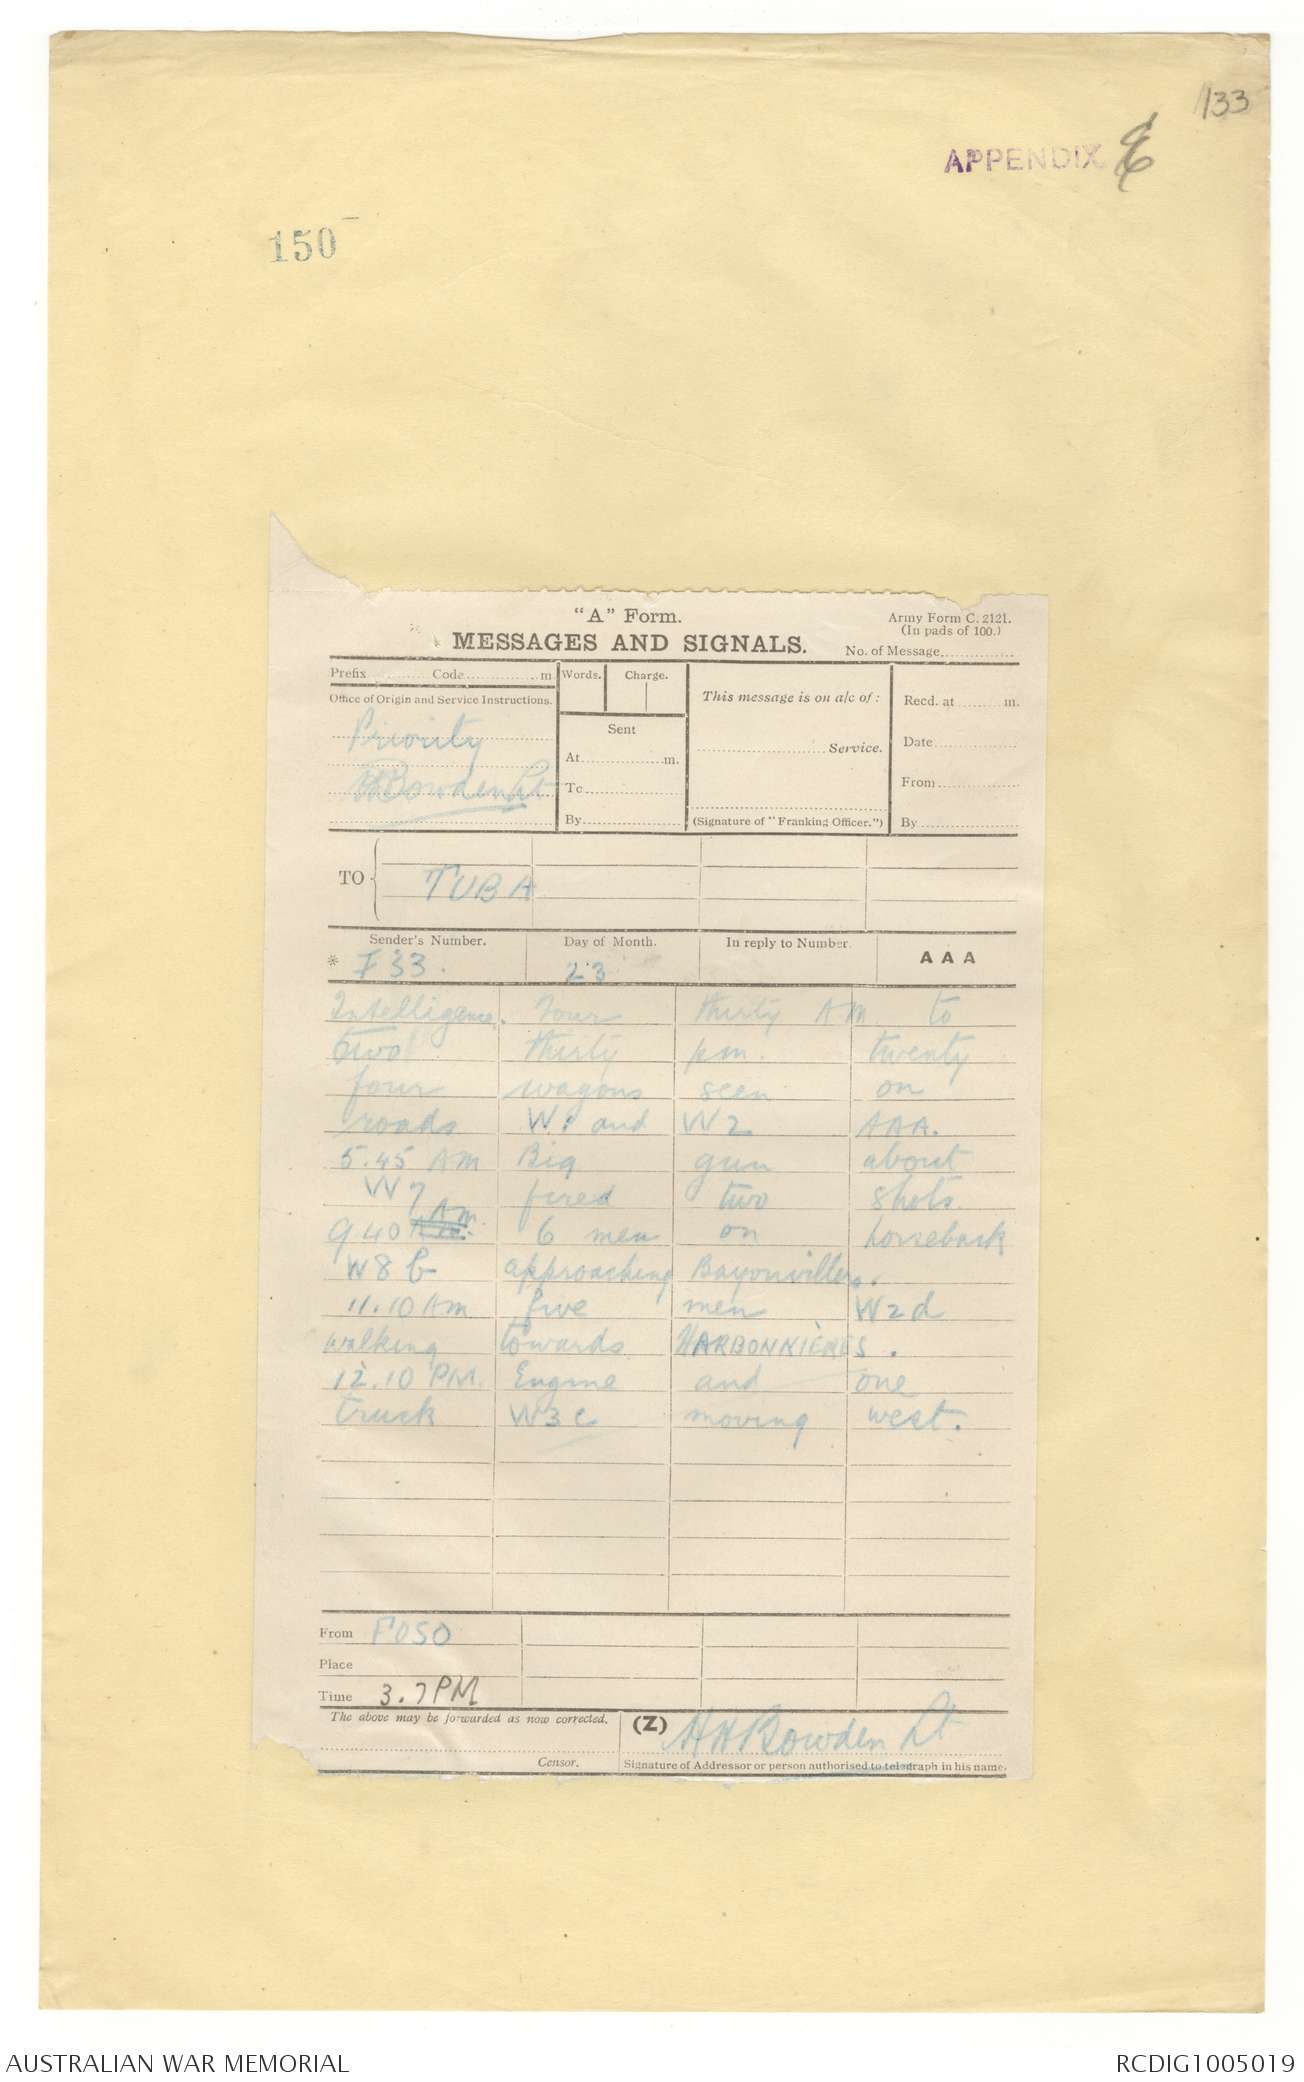 133
APPENDIX E
150
"A" Form.
Army Form C. 2121.
(In pads of 100.)
MESSAGES AND SIGNALS.
No. of Message..............
Prefix............Code...............m.
Words.
Charge.
This message is on a/c of:
Recd. at.........m.
Office of Origin and Service Instructions.
Priority
Sent
Date
At...............m.
Service.
HHBowden Lt
To
From
By
(Signature of "Franking Officer.")
By
TO
TUBA
Sender's Number.
Day of Month.
In reply to Number.
AAA
* I 33.
23
Intelligence. Four thirty AM to
two thirty pm. twenty
four wagons seen on
roads W1 and W2 AAA.
5.45 AM Big gun about
W7 fired two shots.
9.40 A.M. 6 men on horseback
W8 b approaching Bayonvillers.
11.10 AM five men W2d
walking towards HARBONNIÈRES.
12.10 PM. Engine and one
truck W3c moving west.
From FOSO
Place
Time 3.7PM
The above may be forwarded as now corrected.
(Z) HHBowden Lt
Censor.
Signature of Addressor or person authorised to telegraph in his name.
AUSTRALIAN WAR MEMORIAL
RCDIG1005019